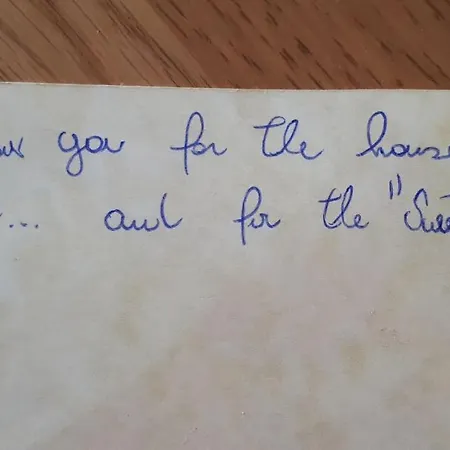 you for the hous
... and for the "Swe